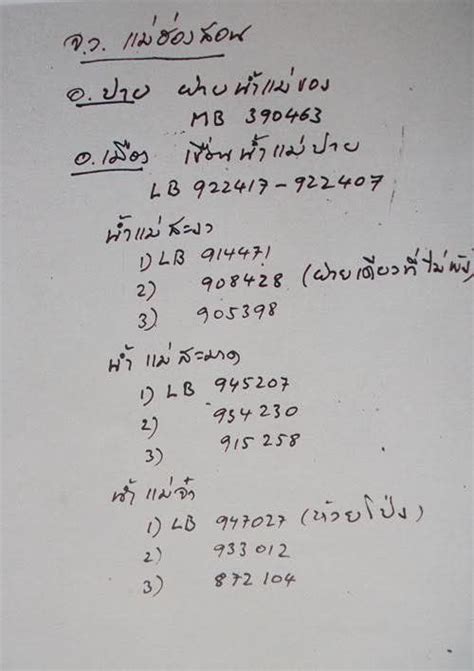 จ.ว. แม่ฮ่องสอน
อ.ปาย ฝายน้ำแม่ของ
MB 390463
อ.เมือง เขื่อนน้ำแม่ปาย
LB 922417-922407
น้ำแม่สะงา
1) LB 914471
2) 908428 (ฝายเดียวที่ไม่พัง)
3) 905398
น้ำแม่สะมาด
1) LB 945207
2) 934230
3) 915258
น้ำแม่จ๋า
1) LB 947027 (ห้วยโป่ง)
2) 933012
3) 872104